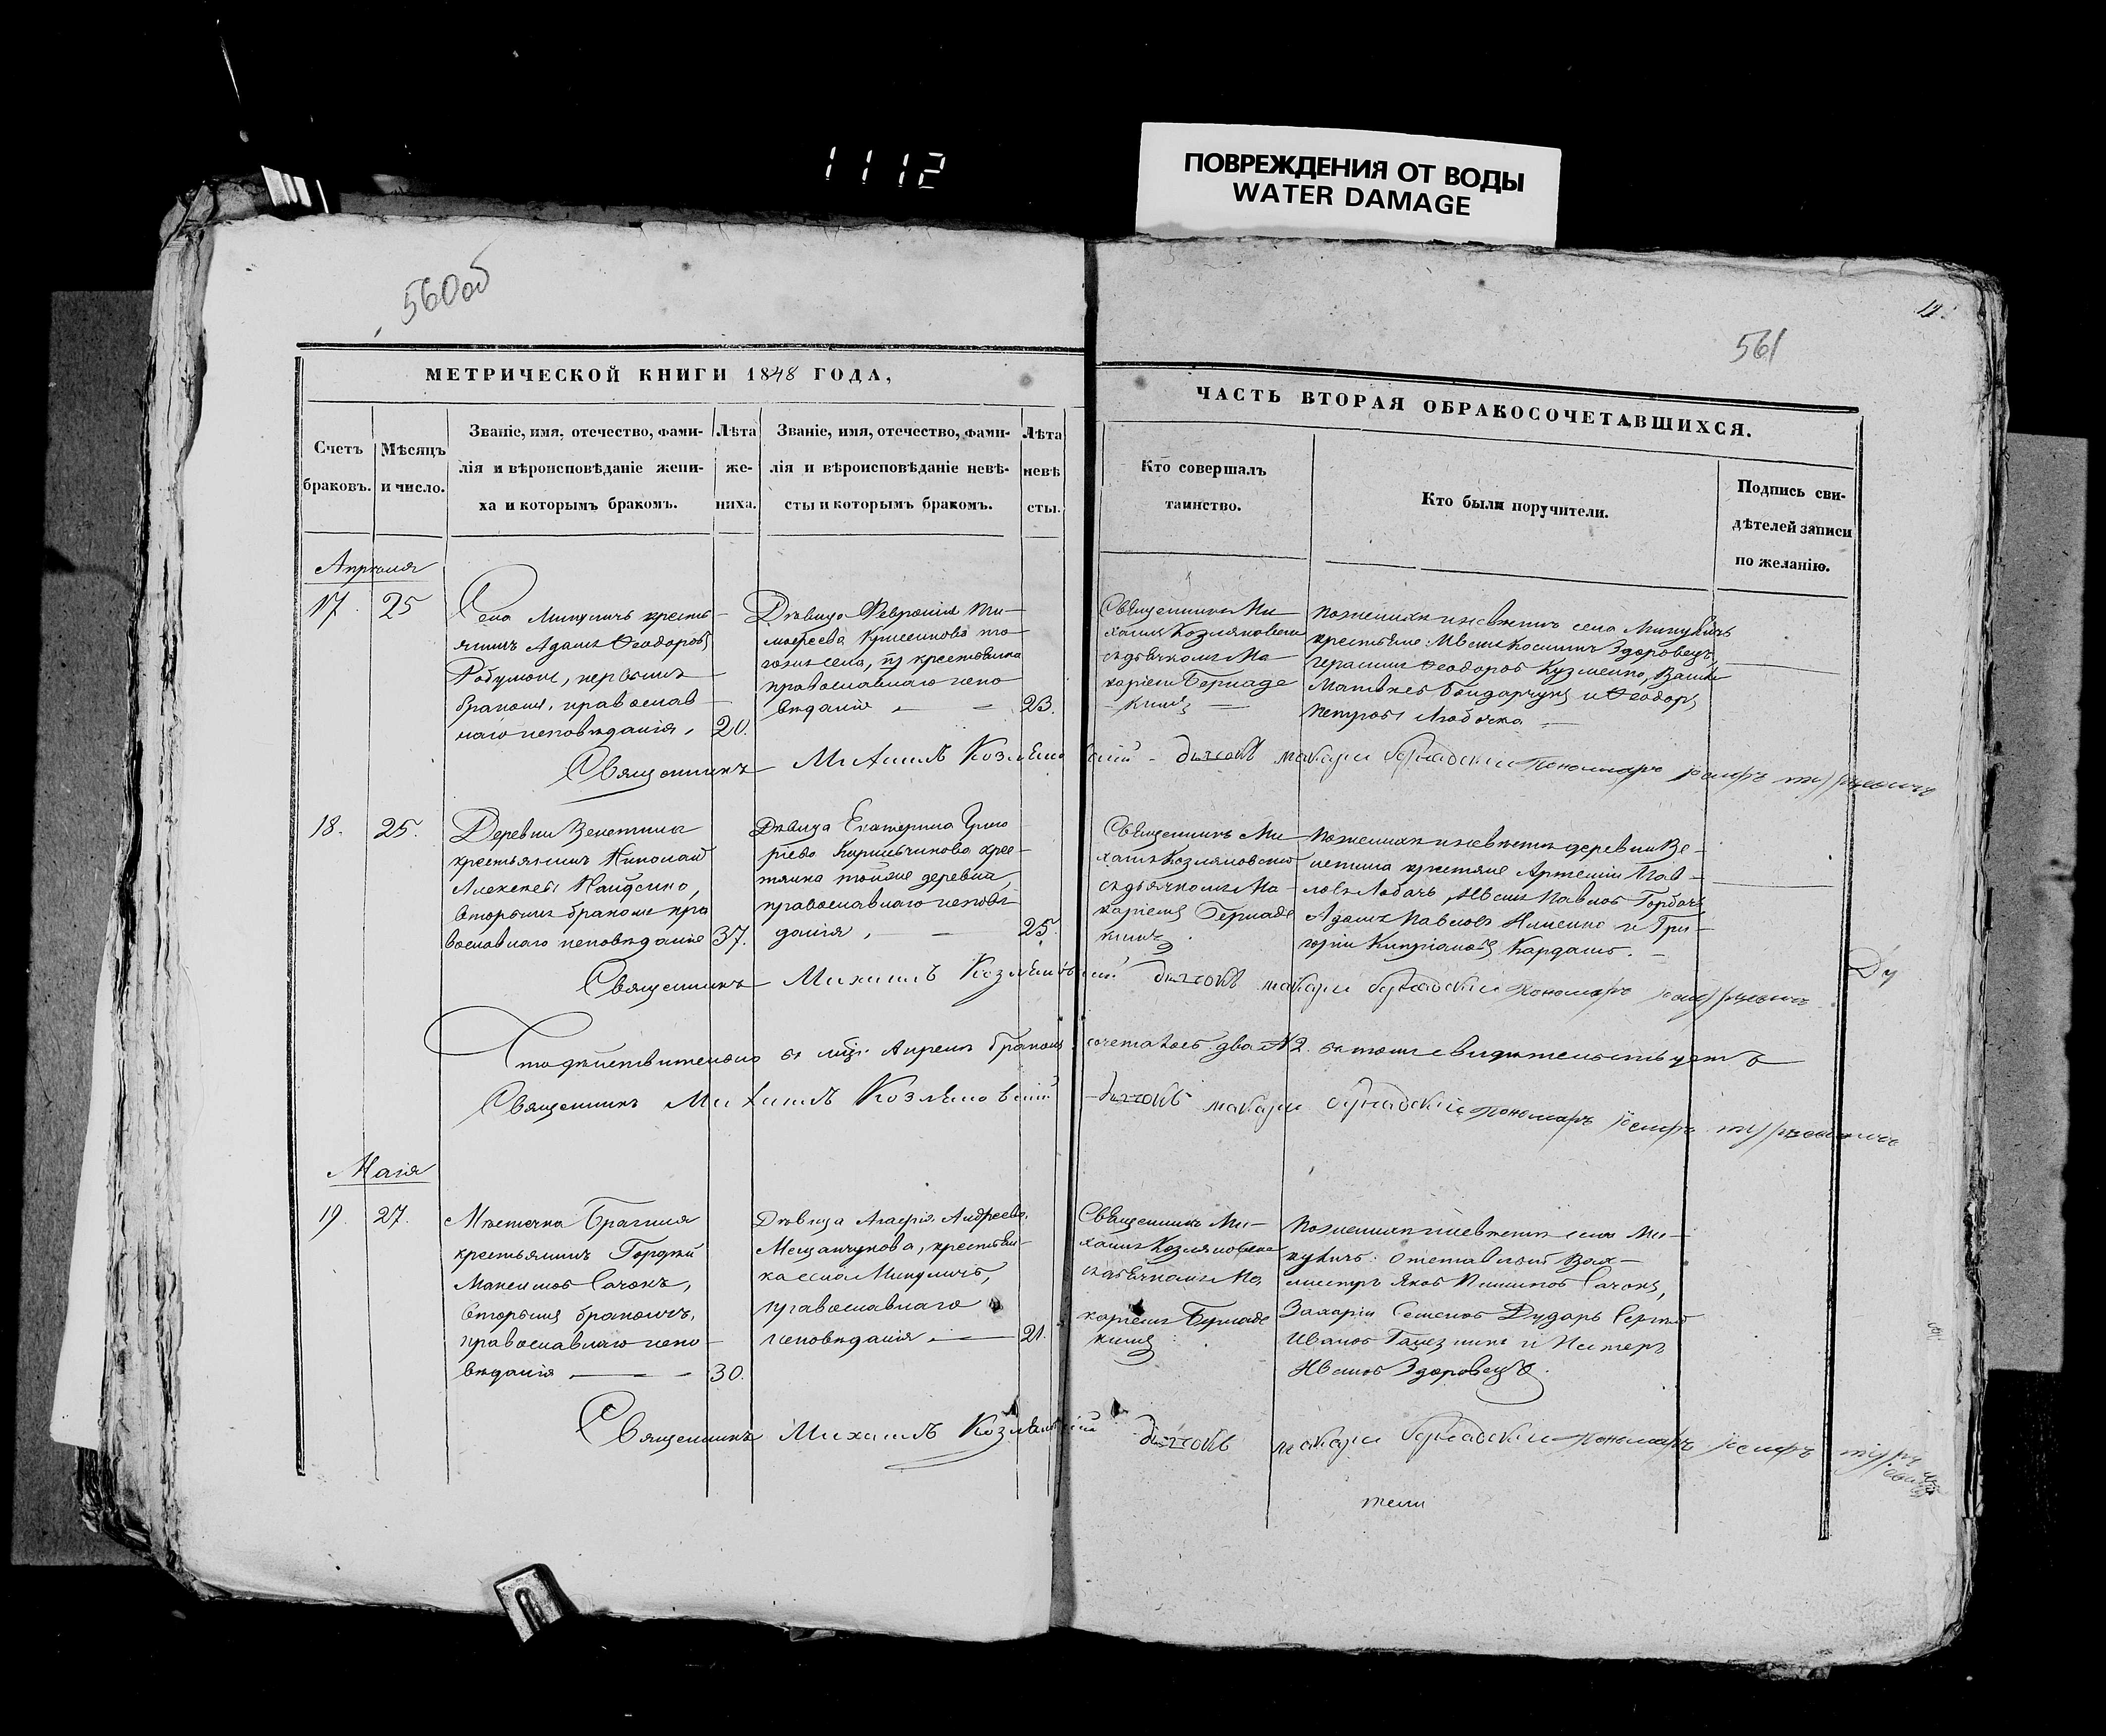 1112
ПОВРЕЖДЕНИЯ ОТ ВОДЫ
WATER DAMAGE
560об
12
561
МЕТРИЧЕСКОЙ КНИГИ 1848 ГОДА,
ЧАСТЬ ВТОРАЯ ОБРАКОСОЧЕТАВШИХСЯ.
Счетъ
браковъ.
Мѣсяцъ
и число.
Званіе, имя, отечество, фами-
лія и вѣроисповѣданіе жени-
ха и которымъ бракомъ.
Лѣта
же-
ниха.
Званіе, имя, отечество, фами-
лія и вѣроисповѣданіе невѣ-
сты и которымъ бракомъ.
Лѣта
невѣ
сты.
Кто совершалъ
таинство.
Кто были поручители.
Подпись сви-
дѣтелей записи
по желанію.
Апрѣля
17. 25
Села Микуличъ кресть-
янинъ Адамъ Ѳеодоровъ
первымъ
бракомъ, православ-
наго исповѣданія, 20.
Дѣвица Февронія Ти-
моѳеева
гожъ села, крестьянка
православнаго испо-
вѣданія 23.
Священникъ Ми-
хаилъ Козляковскій
съ дьячкомъ Ма-
каріемъ Бернадс
кимъ
по женихѣ и невѣстѣ села Микуличъ
крестьяне Иванъ Космин Здоровецъ,
Герасимъ Ѳеодоровъ Кузменко,
Матвѣевъ Бондарчукъ и Ѳеодоръ
Петровъ Любочко
Священникъ Михаилъ Козляковскій - дьячокъ Макарій Бернадскій Пономарь
18. 25.
Деревни
крестьянинъ Николай
Алексѣевъ Найденко,
вторымъ бракомъ пра
вославнаго исповѣданія 37.
Дѣвица Екатерина Григо
рьева крес-
тянка тойже деревни
православнаго исповѣ
данія, 25.
Священникъ Ми
хаилъ Козляковскій
съ дьячкомъ Ма-
каріемъ Бернадс
кимъ.
по женихѣ и невѣстѣ деревни
крестяне Артемій Пав-
ловъ Лобачъ, Иванъ Павловъ Горбачъ
Адамъ Павловъ и Гри-
горій Кипріановъ Кардашъ.
Священникъ Михаилъ Козляковскій дьячокъ Макарій Бернадскій Пономарь
Что дѣйствительно въ мцѣ Апрелѣ бракомъ сочеталось два №2. въ томъ свидѣтельствуетъ
Священникъ Михаилъ Козляковскій - дьячокъ Макарій Бернадскій Пономарь
Маія
19. 27.
Мѣстечка Брагиня
крестьянинъ Гордѣй
Максимовъ Сачокъ,
вторымъ бракомъ,
православнаго испо-
вѣданія 30.
Дѣвица Агафія Андреева
Мещанчукова, крестьян-
ка села Микуличъ,
православнаго
исповѣданія 21.
Священникъ Ми-
хаилъ Козляковскій
съ дьячкомъ Ма
каріемъ Бернадс
кимъ
по женихѣ и невѣстѣ села Ми-
куличъ: отставной Вах-
мистръ Яковъ Сачокъ,
Захарій Семеновъ Дударь Сергей
Ивановъ и Нестеръ
Ивановъ Здоровецъ.
Священникъ Михаилъ Козляковскій дьячокъ Макарій Бернадскій Пономарь